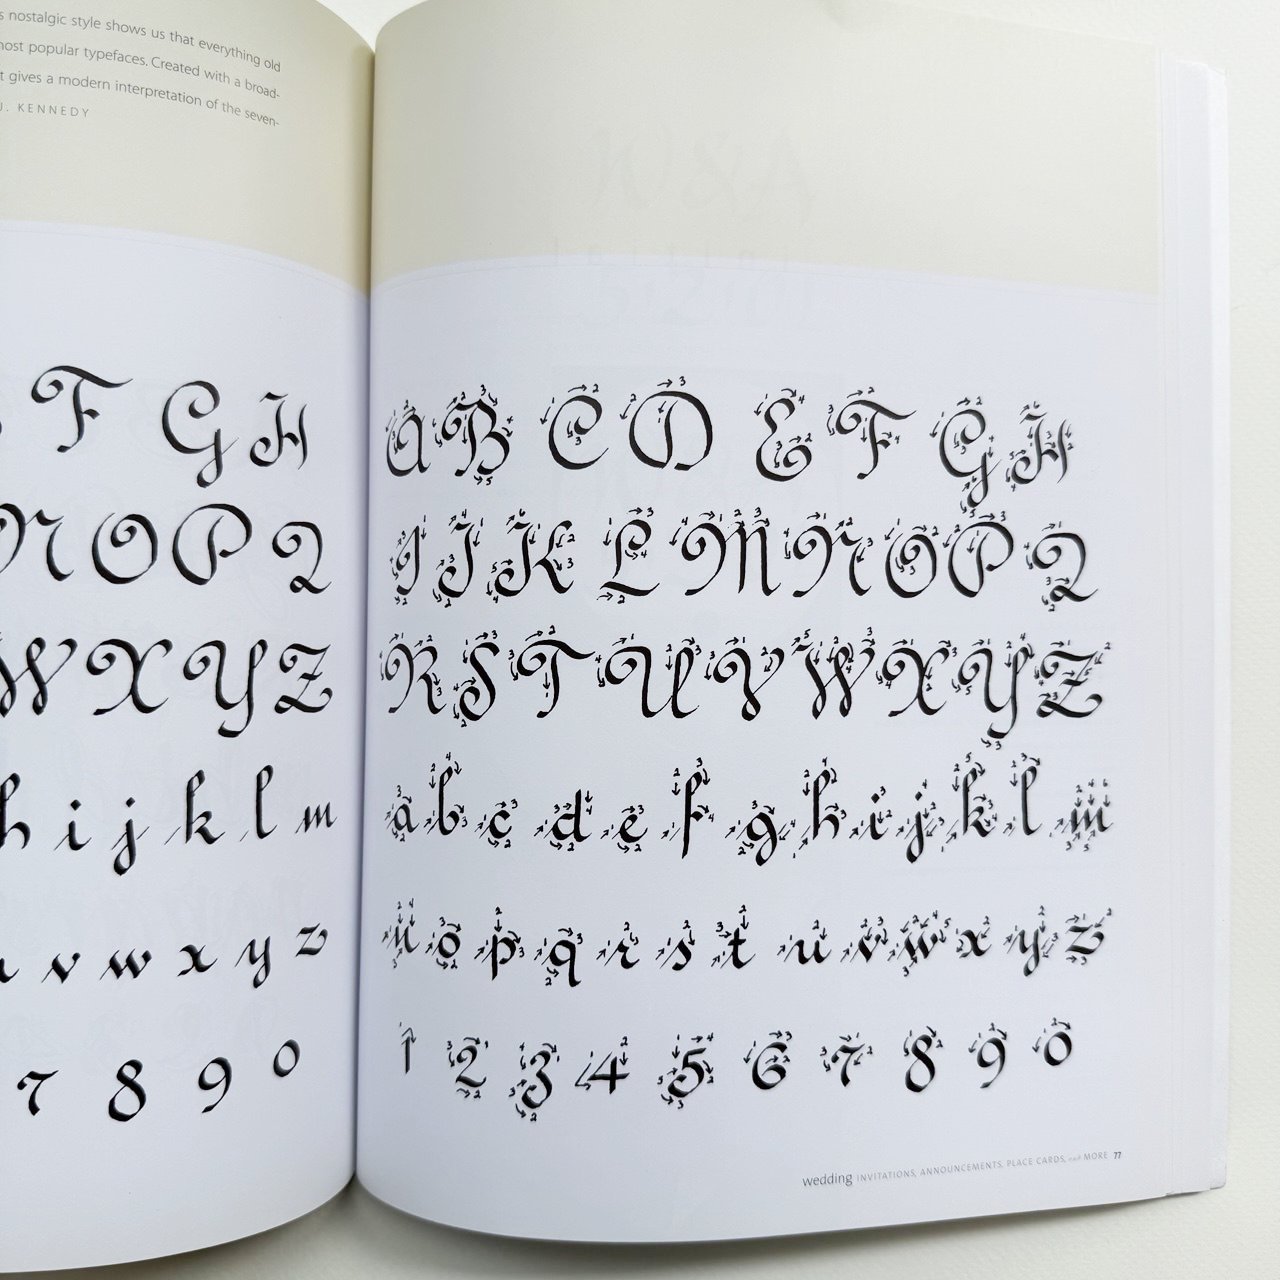 s nostalgic style shows us that everything old
most popular typefaces. Created with a broad-
t gives a modern interpretation of the seven-
J. KENNEDY
F G H
N O P Q
W X Y Z
h i j k l m
v w x y z
7 8 9 0
A B C D E F G H
I J K L M N O P Q
R S T U V W X Y Z
a b c d e f g h i j k l m
n o p q r s t u v w x y z
1 2 3 4 5 6 7 8 9 0
wedding INVITATIONS, ANNOUNCEMENTS, PLACE CARDS, and MORE 77